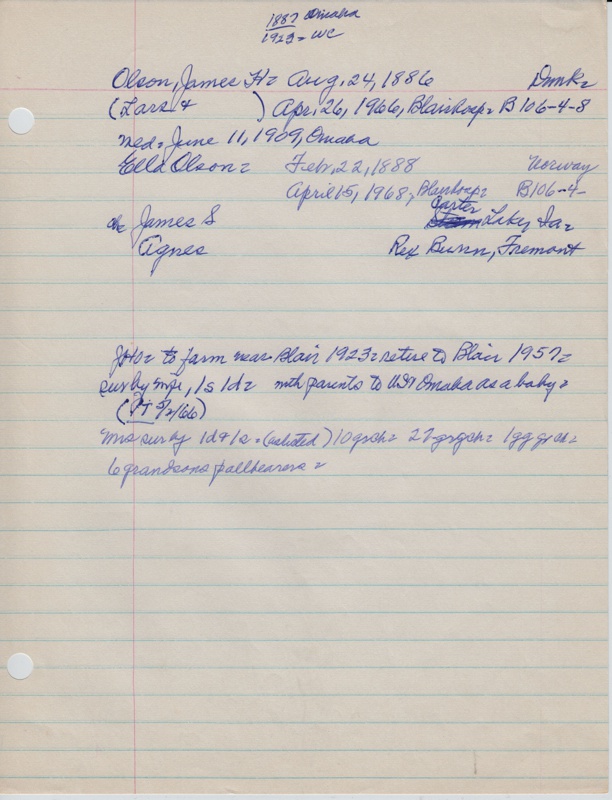 1887 Omaha
1923= WC
Olson, James H= Aug. 24, 1886 Dmk=
(Lars & ) Apr. 26, 1966, Blairhosp= B106-4-8
med= June 11, 1909, Omaha
Ella Olson= Feb. 22, 1888 Norway
April 5, 1968, Blairhosp= B106-4-
ch James S Carter Lake, Ia=
Agnes Rex Bunn, Fremont
JHO= to farm near Blair 1923= retire to Blair 1957=
sur by mps, 1s 1d= mth parents to US, Omaha as a baby=
(PT 5/2/66)
Mrs sur by 1d & 1s= (aslisted) 10 grch= 27 grgch= 1 gg grch=
6 grandsons pallbearers=